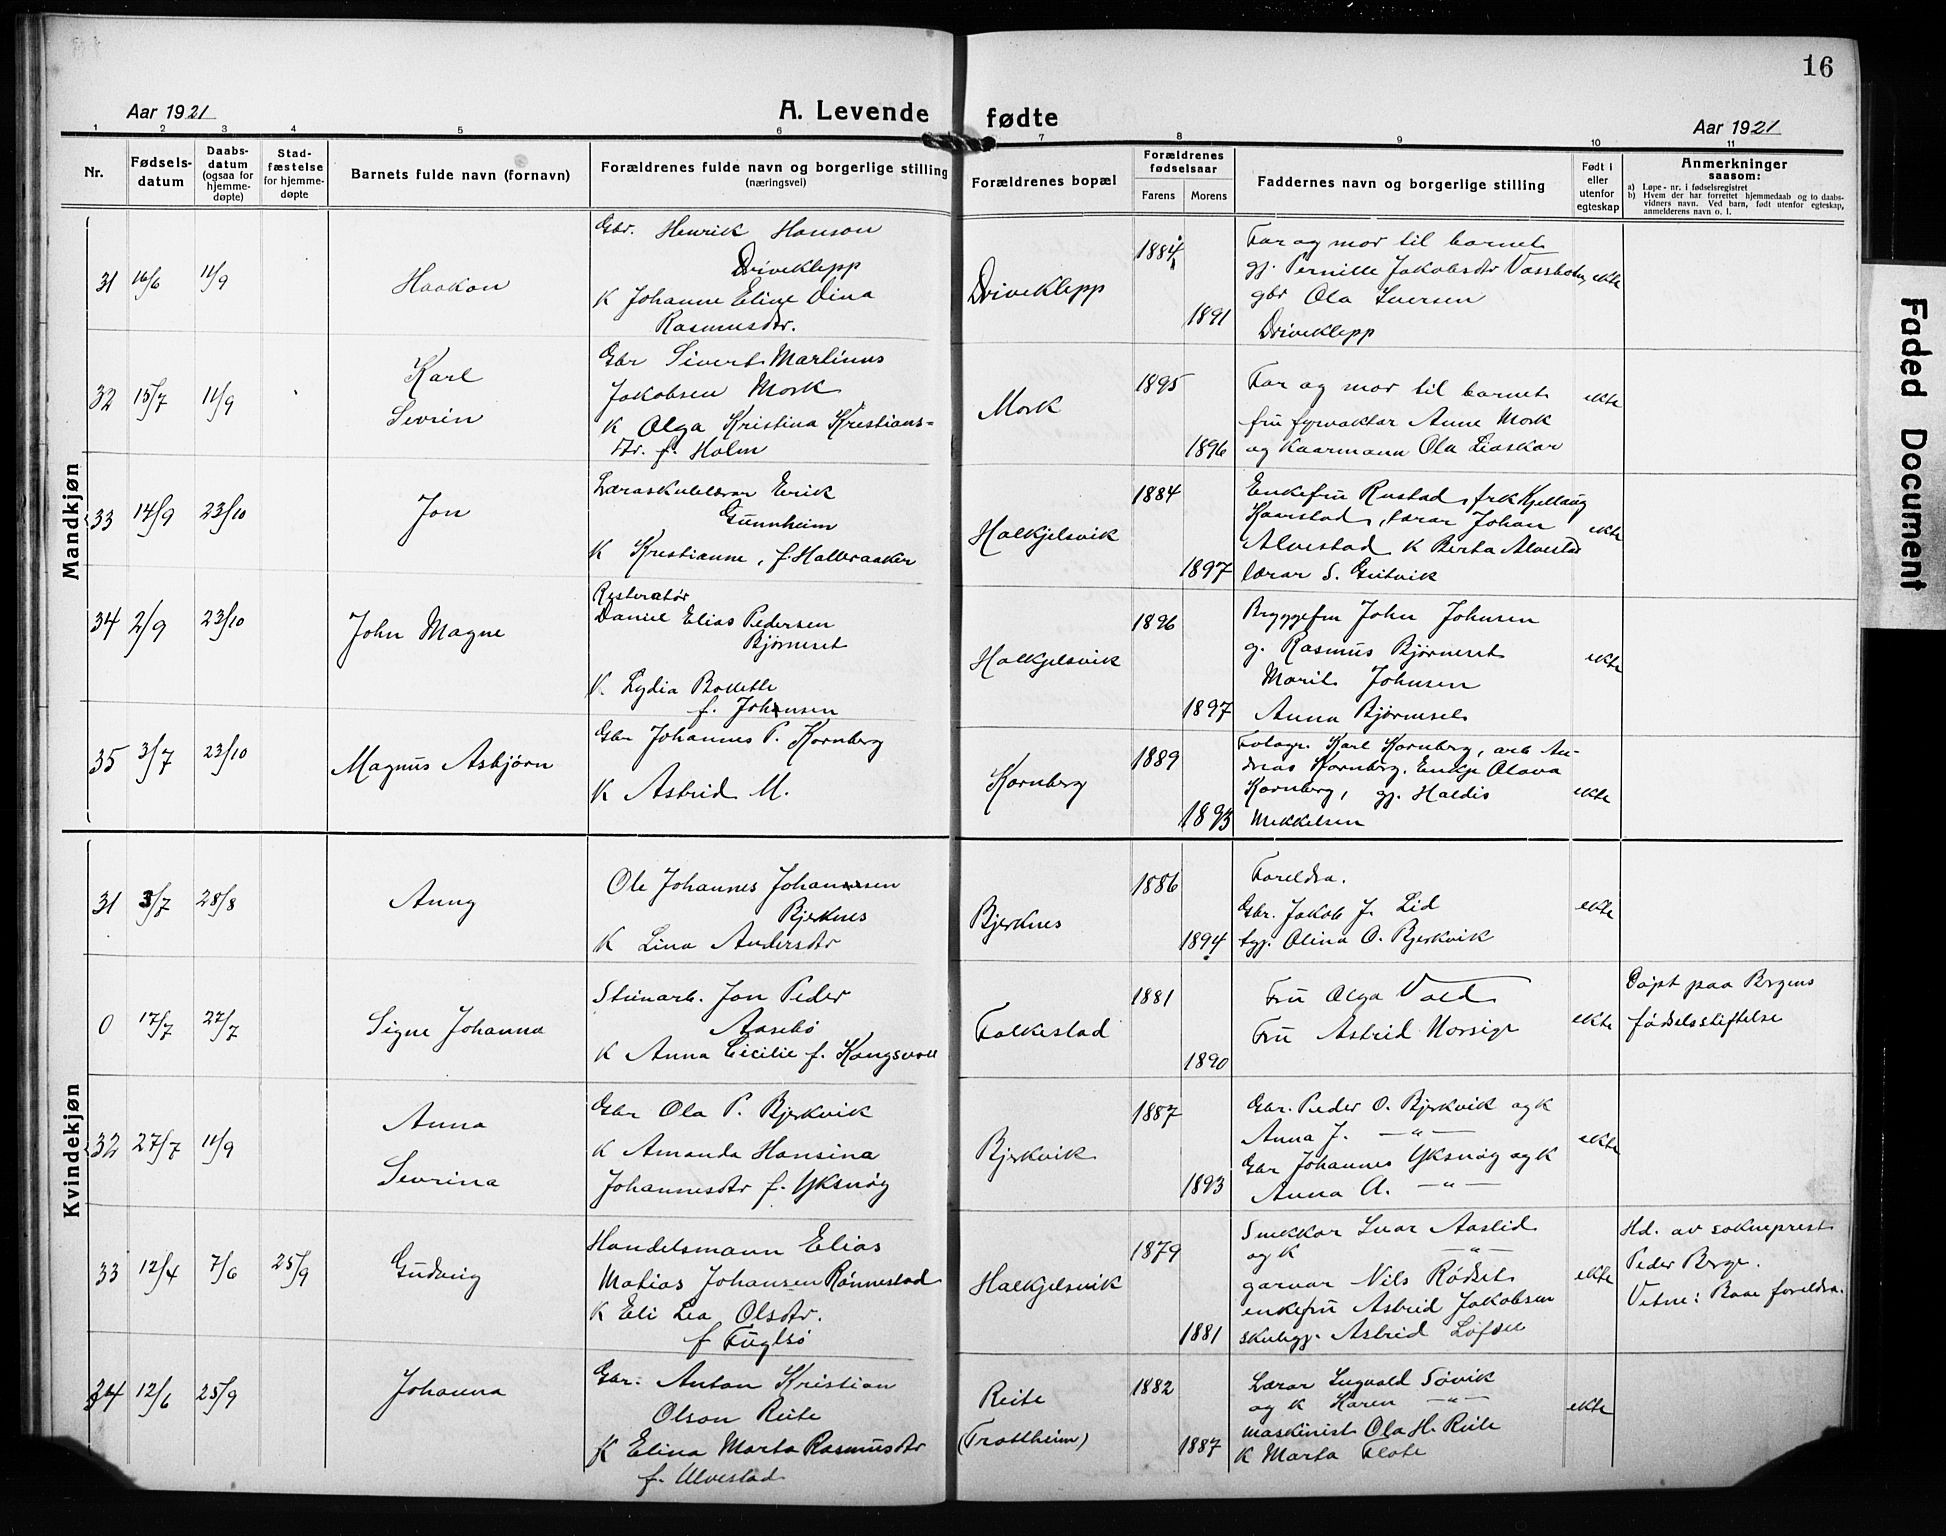 16
Aar 1921
A. Levende fødte
Aar 1921
1 2 3 4 5 6 7 8 9 10 11
Nr.
Fødsels-
datum
Daabs-
datum
(ogsaa for
hjemme-
døpte)
Stad-
fæstelse
for hjemme-
døpte
Barnets fulde navn (fornavn)
Forældrenes fulde navn og borgerlige stilling
(næringsvei)
Forældrenes bopæl
Forældrenes
fødselsaar
Farens Morens
Faddernes navn og borgerlige stilling
Født i
eller
utenfor
egteskap
Anmerkninger
saasom:
a) Løpe-nr. i fødselsregistret
b) Hvem der har forrettet hjemmedaab og to daabs-
vidners navn. Ved barn, født utenfor egteskap,
anmelderens navn o. l.
Mandkjøn
31 16/6 11/9
Haakon
Gbr. Henrik Hanson
Driveklepp
K Johanne Eline Dina
Rasmusdtr.
Driveklepp
1884
1891
Far og mor til barnet
gj. Pernille Jakobsdtr
gbr Ola Iversen
Driveklepp
ekte
32 15/7 11/9
Karl
Sevrin
Gbr Sivert Martinus
Jakobsen Mork
K Olga Kristina Kristians-
dtr. f. Holm
Mork
1895
1896
Far og mor til barnet
fru fyrvaktar Anne Mork
og kaarmann Ola Liaskar
ekte
33 14/9 23/10
Jon
Læraskulelærar Eirik
Gunnheim
K Kristianne, f. Halbraaker
Halkjelsvik
1884
1897
Enkefru Rustad, frk Kjellaug
Kaarstad, lærar Johan
Alvestad K Berta Alvestad
lærar S.
ekte
34 2/9 23/10
John Magne
Daniel Elias Pedersen
Bjørneset
K. Lydia
f. Johansen
Halkjelsvik
1896
1897
John Johnsen
g. Rasmus Bjørneset
Marit Johnsen
Anna Bjørneset
ekte
35 3/7 23/10
Magnus Asbjørn
Gbr Johannes P. Kornberg
K Astrid M.
Kornberg
1889
1893
Fotogr. Karl Kornberg, arb An-
dreas Kornberg, Enkje Olava
Kornberg, gj. Haldis
Mikkelsen
ekte
Kvindekjøn
31 3/7 28/8
Anny
Ole Johannes Johansen
Bjerknes
K Lina Andersdtr
Bjerknes
1886
1894
Foreldra.
Gbr. Jakob J. Lid
Olina O. Bjerkvik
ekte
0 17/7 27/7
Signe Johanna
Steinarb. Jon Peder
Aasebø
K Anna Cicilie f. Kongsvoll
Folkestad
1881
1890
Fru Olga Vold
Fru Astrid
ekte
Døpt paa Bergens
fødselsstiftelse
32 27/7 11/9
Anna
Sevrina
Gbr Ola P. Bjerkvik
K Amanda Hansina
Johannesdtr f. Yksnøy
Bjerkvik
1887
1893
Gbr. Peder O. Bjerkvik og K
Anna J. —"—
Gbr Johannes Yksnøy og K
Anna A. —"—
ekte
33 12/4 7/6 25/9
Gudveig
Handelsmann Elias
Matias Johansen Rønnestad
K Eli Lea Olsdtr.
f Fuglsø
Halkjelsvik
1879
1881
Snikkar Ivar Aaslid
og K —"—
garvar Nils Rødset
enkefru Astrid Jakobsen
skulegj. Astrid
ekte
Hd. av sokneprest
Peder Berge.
Vitne: Baae foreldra.
34 12/6 25/9
Johanna
Gbr. Anton Kristian
Olson Reite
K Elina Marta Rasmusdtr
f. Ulvestad
Reite
(Trollheim)
1882
1887
Lærar Ingvald Søvik
og K Karen —"—
maskinist Ola H. Reite
K Marta Flote
ekte
Faded Document